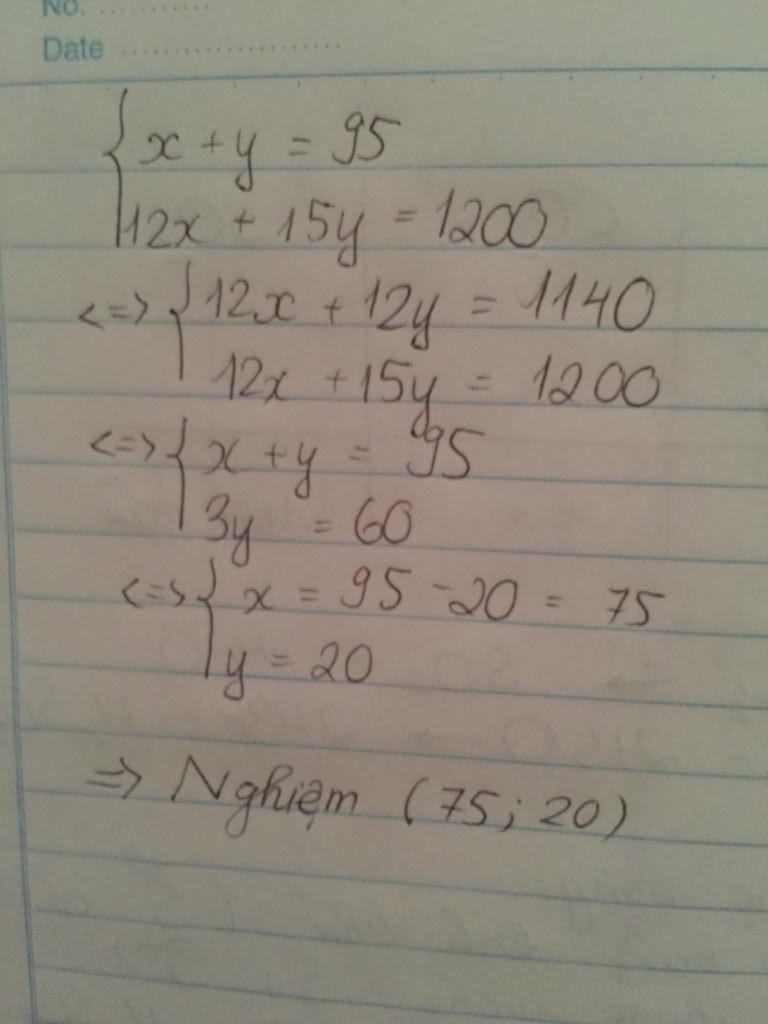 No. ............
Date ........................
{ x + y = 95
12x + 15y = 1200
<=> { 12x + 12y = 1140
12x + 15y = 1200
<=> { x + y = 95
3y = 60
<=> { x = 95 - 20 = 75
y = 20
=> Nghiệm (75; 20)